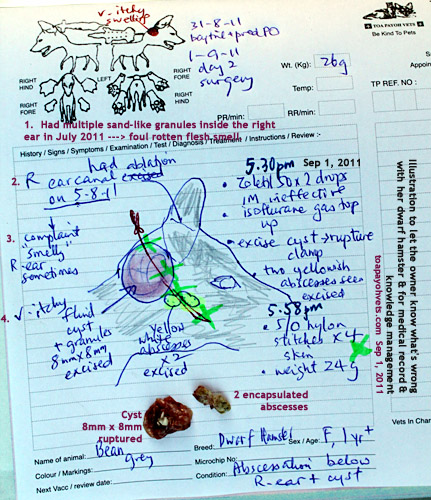 v. itchy
swelling
31-8-11
baytril + pred PO
1-9-11
day 2
surgery
TOA PAYOH VETS
Be Kind To Pets
RIGHT
HIND
LEFT
RIGHT
FORE
RIGHT
HIND
RIGHT
FORE
Wt. (Kg): 26g
Temp:
PR/min:
RR/min:
TP REF NO :
1. Had multiple sand-like granules inside the right
ear in July 2011 ---> foul rotten flesh smell
History / Signs / Symptoms / Examination / Test / Diagnosis / Treatment / Instructions / Review :-
had ablation
2. R ear canal excised
on 5-8-11
3. complaint
"smelly"
R-ear
sometimes
4. v. itchy
fluid
cyst
+ granules
8mm x 8mm
excised
yellow
white
abscesses
x 2
excised
5.30pm Sep 1, 2011
• Zoletil 50 x 2 drops
IM ineffective
• isoflurane gas top
up
• excise cyst → rupture
clamp
• two yellowish
abscesses seen
excised
5:58pm
• 5/0 nylon
stitches x 4
skin
• weight 24g
2 encapsulated
abscesses
Cyst
8mm x 8mm
ruptured
Name of animal: Bean
Colour / Markings: grey
Next Vacc / review date:
Breed: Dwarf Hamster Sex / Age: F, 1yr+
Microchip No:
Condition: Abscessation below
R-ear + cyst
Vets In Char
Illustration to let the owner know what's wrong
with her dwarf hamster & for medical record &
knowledge management
toapayohvets.com Sep 1, 2011